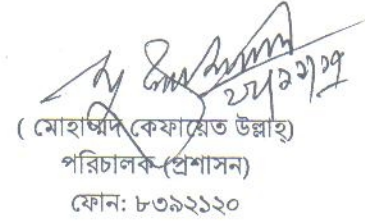 ( মোহাম্মদ কেফায়েত উল্লাহ)
পরিচালক (প্রশাসন)
ফোন: ৮৩৯২১২০